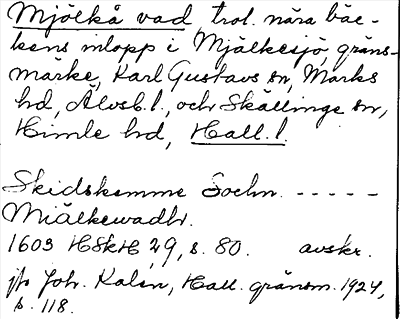 Mjölkå vad, trol. nära bäc-
kens inlopp i Mjälkesjö, gräns-
märke, Karl Gustavs sn, Marks
hd, Älvsb. l., och Skällinge sn,
Himle hd, Hall. l.
Skidskemme Sochn. - - - - -
Miälkewadh.
1603 HSkH 29, s. 80. avskr.
jfr Joh. Kalén, Hall. gränsm. 1924,
s. 118.